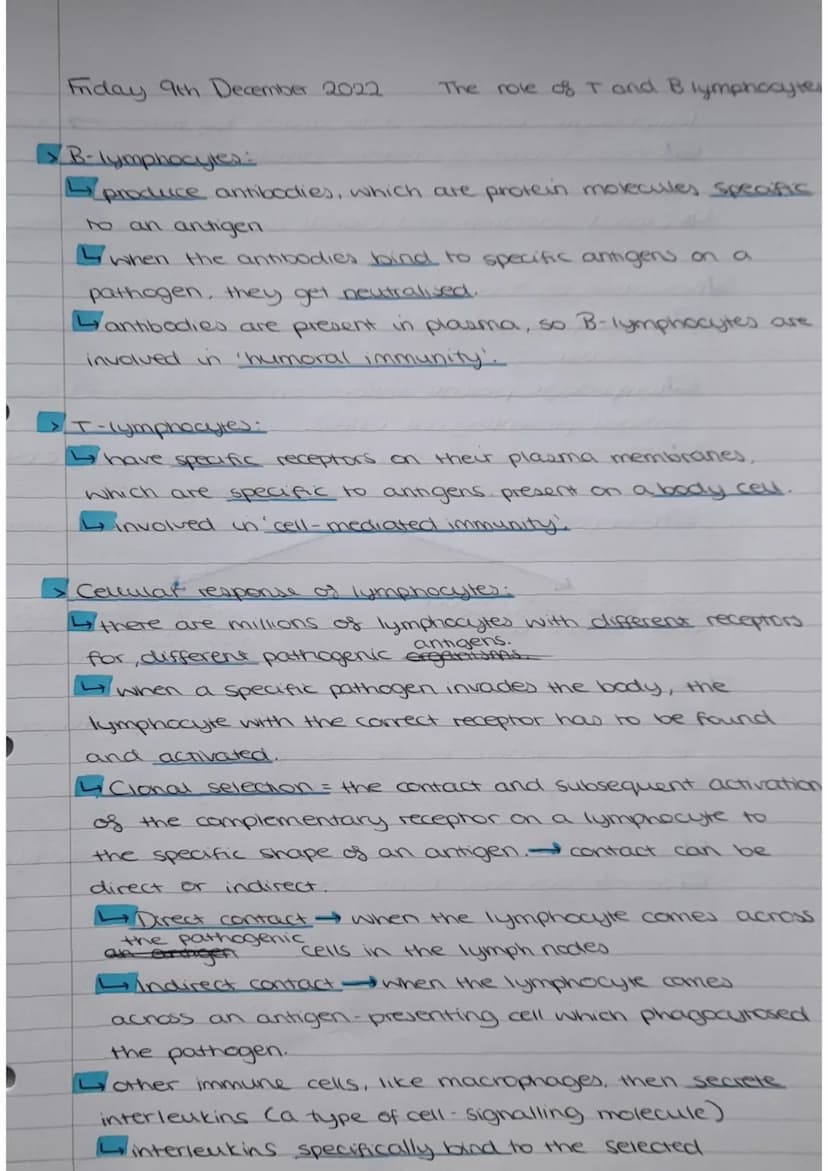 Friday 9th December 2022 The role of T and B lymphocytes
> B-lymphocytes:
↳ produce antibodies, which are protein molecules specific
to an antigen
↳ when the antibodies bind to specific antigens on a
pathogen, they get neutralised.
↳ antibodies are present in plasma, so B-lymphocytes are
involved in 'humoral immunity'.
> T-lymphocytes:
↳ have specific receptors on their plasma membranes,
which are specific to antigens present on a body cell.
↳ involved in 'cell-mediated immunity'.
> Cellular response of lymphocytes:
↳ there are millions of lymphocytes with different receptors
antigens.
for, different pathogenic organisms.
↳ when a specific pathogen invades the body, the
lymphocyte with the correct receptor has to be found
and activated.
↳ Clonal selection = the contact and subsequent activation
of the complementary receptor on a lymphocyte to
the specific shape of an antigen. → contact can be
direct or indirect.
↳ Direct contact → when the lymphocyte comes across
the pathogenic
an antigen cells in the lymph nodes
↳ Indirect contact → when the lymphocyte comes
across an antigen-presenting cell which phagocytosed
the pathogen.
↳ other immune cells, like macrophages, then secrete
interleukins (a type of cell-signalling molecule)
↳ interleukins specifically bind to the selected